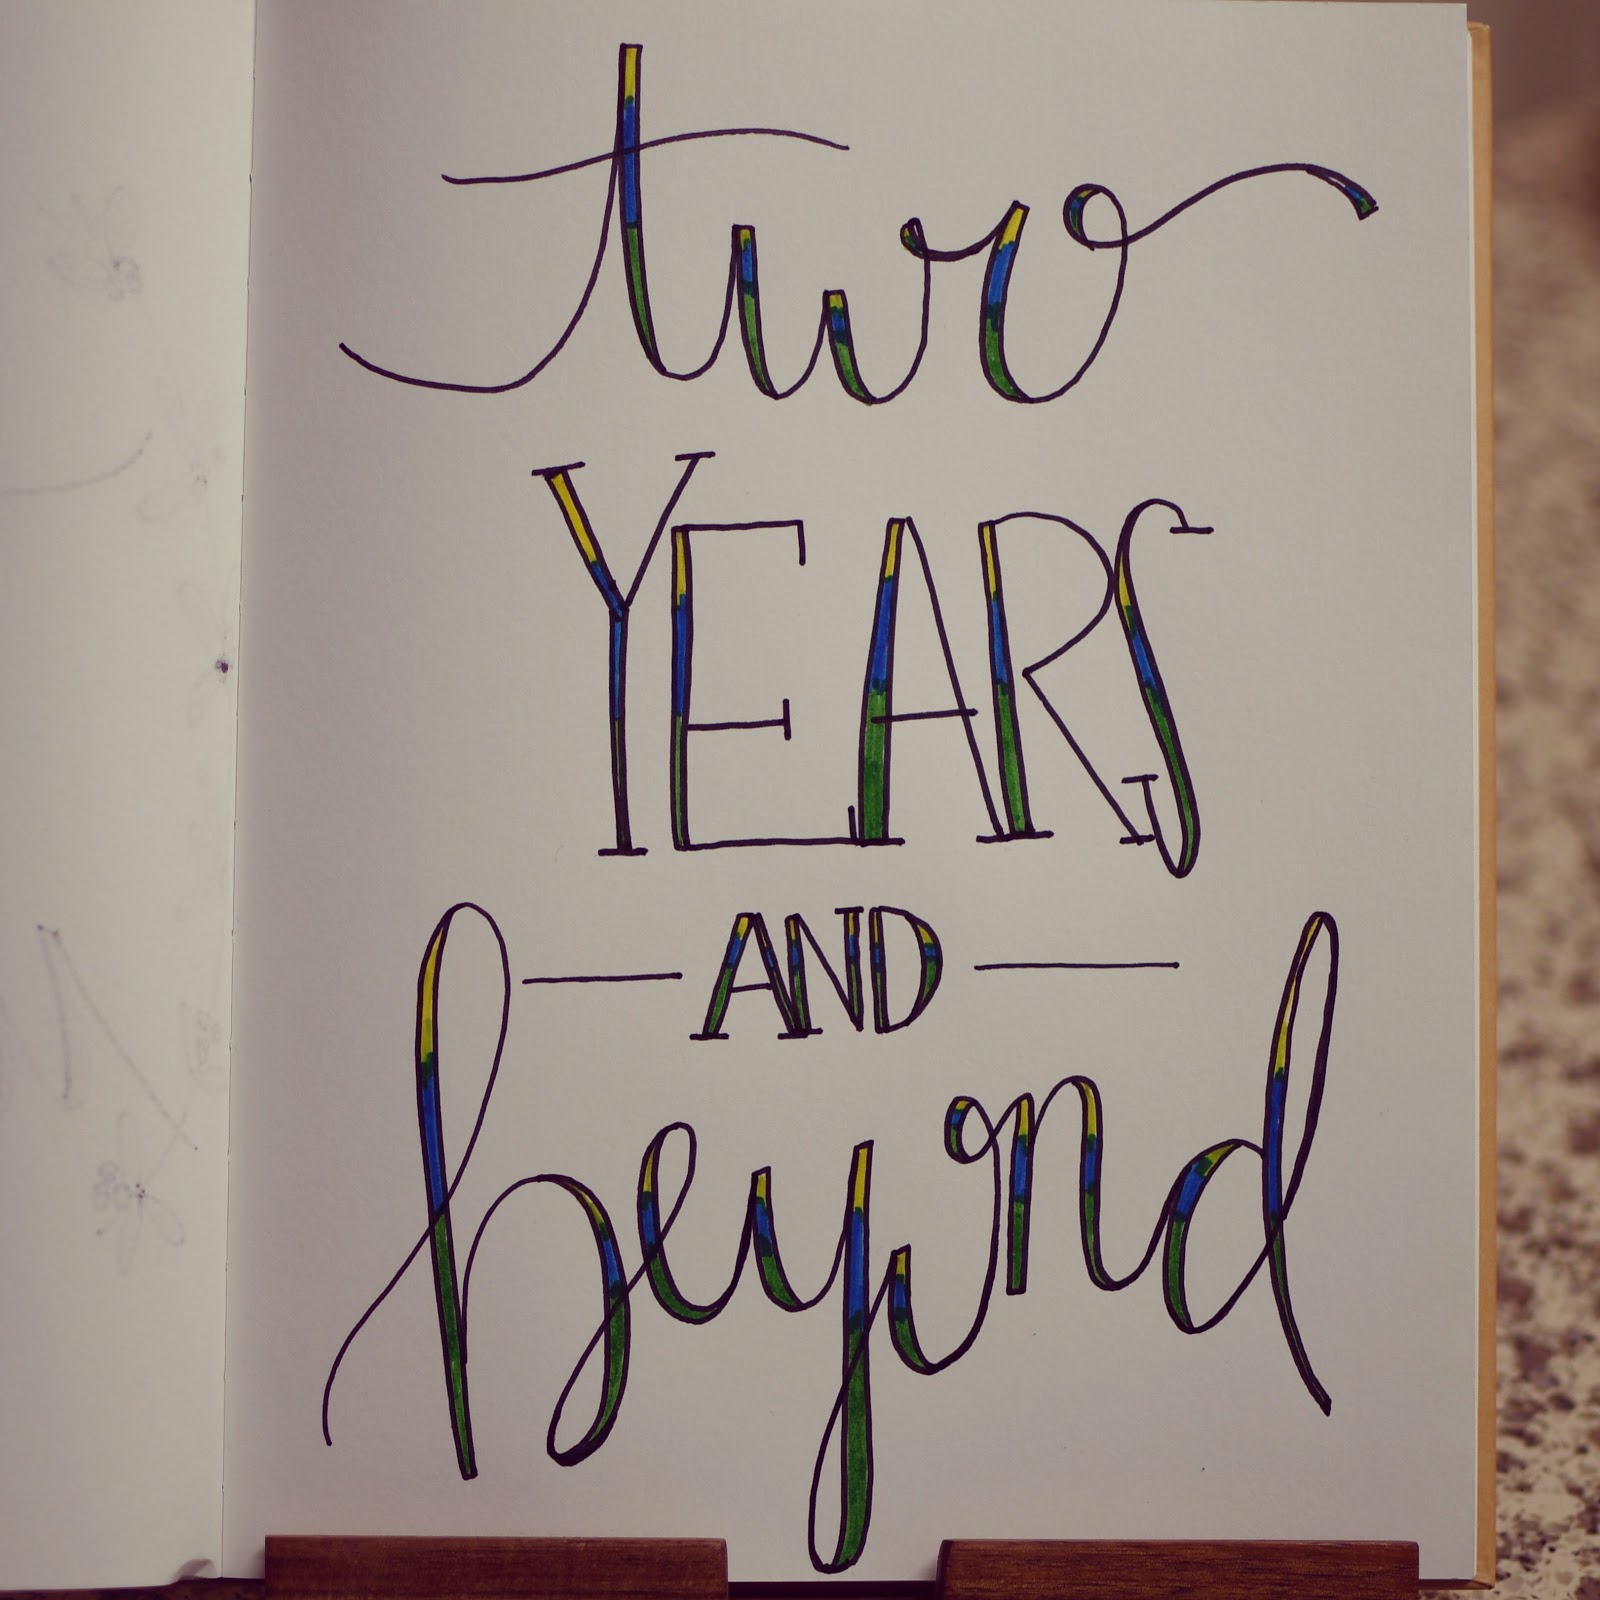 two
YEARS
— AND —
beyond